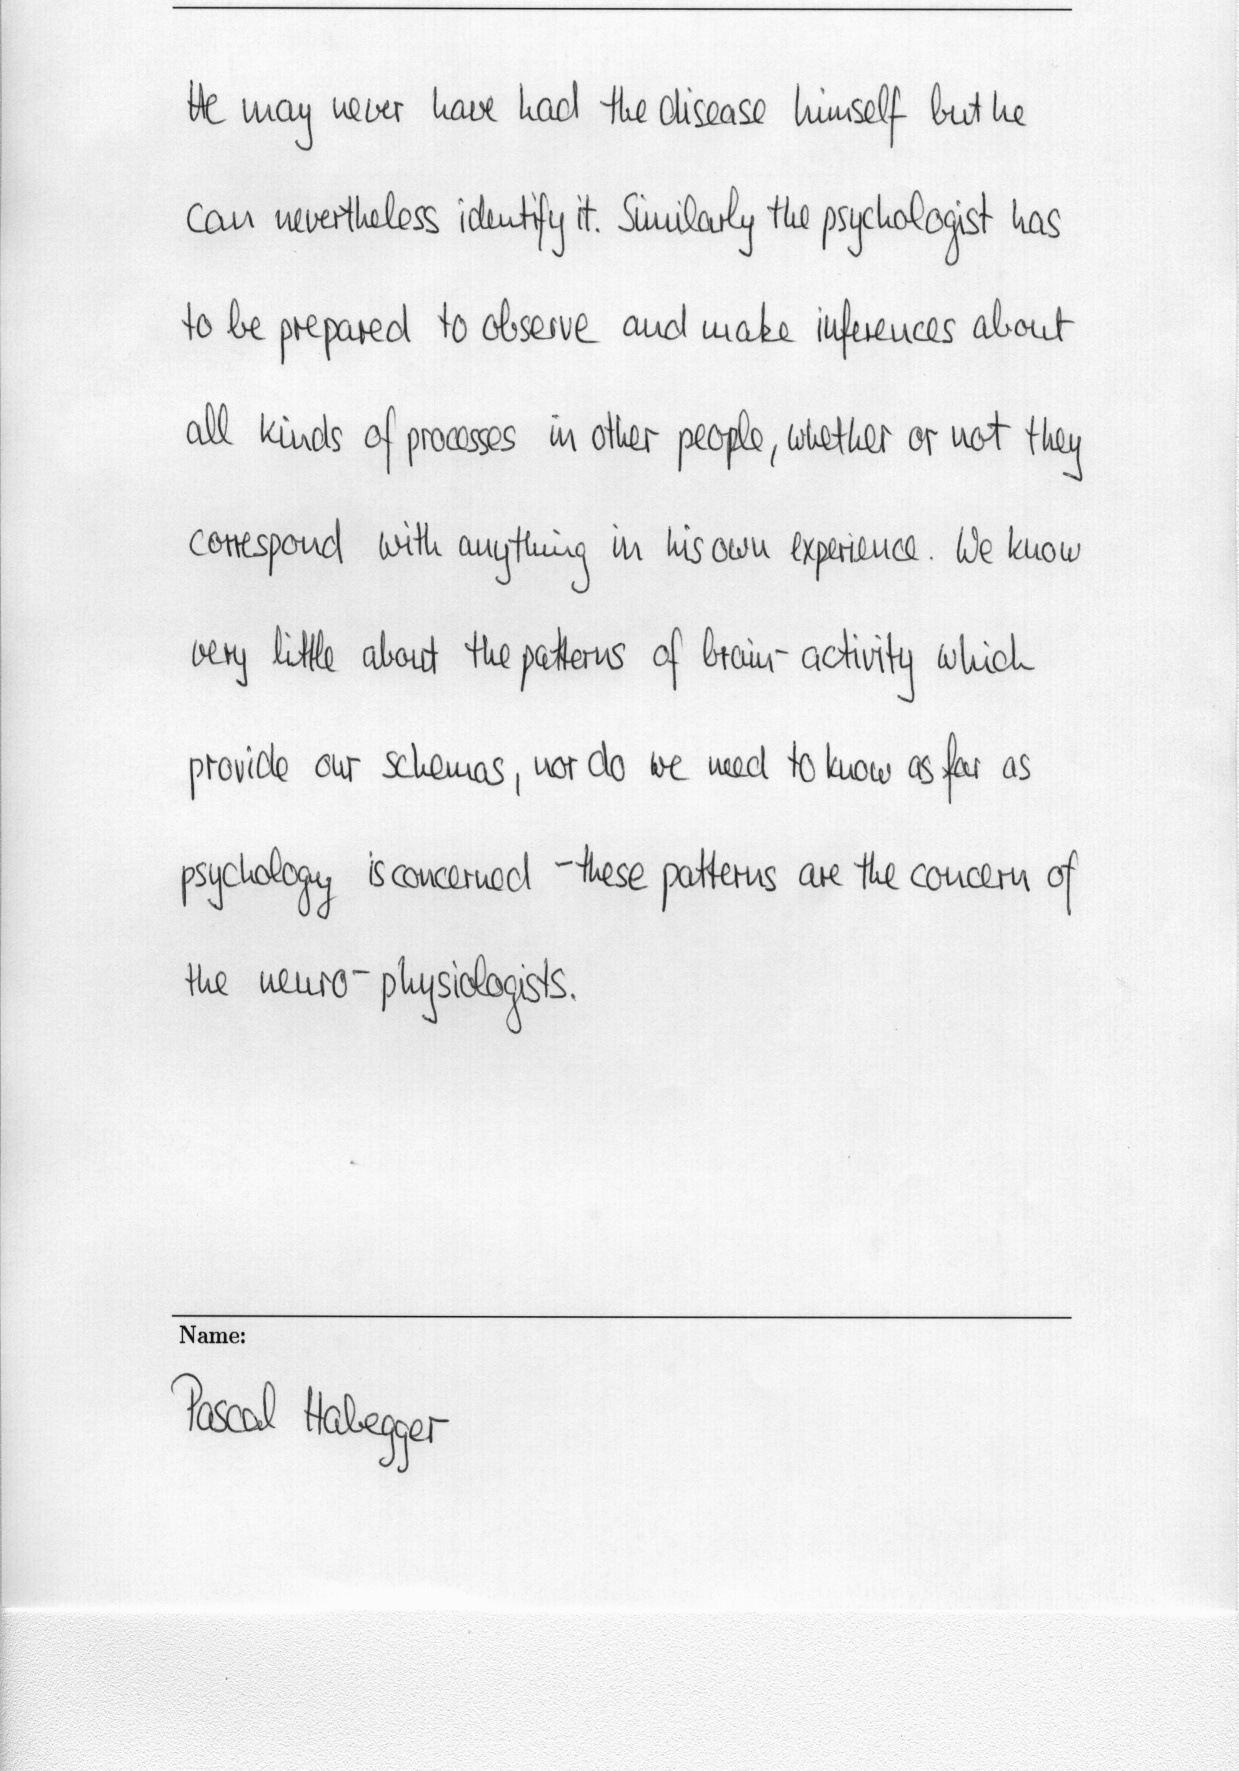 He may never have had the disease himself but he
can nevertheless identify it. Similarly the psychologist has
to be prepared to observe and make inferences about
all kinds of processes in other people, whether or not they
correspond with anything in his own experience. We know
very little about the patterns of brain-activity which
provide our schemas, nor do we need to know as far as
psychology is concerned - these patterns are the concern of
the neuro-physiologists.
Name:
Pascal Habegger